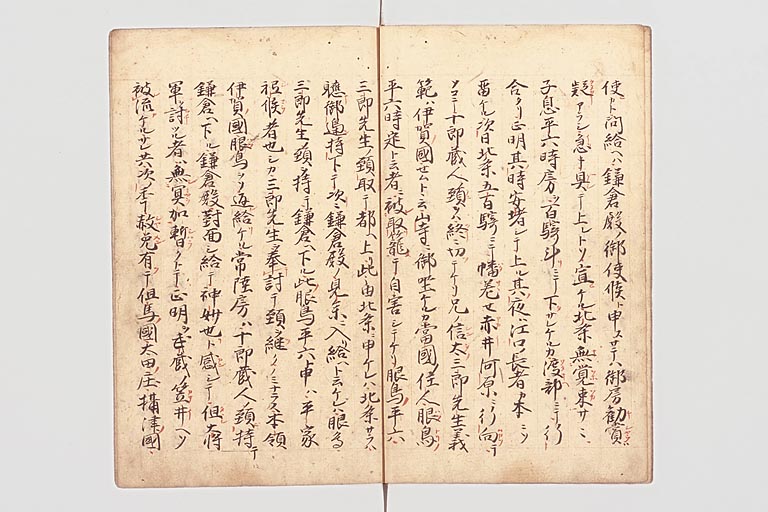 使ト問給ヘハ鎌倉殿ノ御使候ト申スサテハ御房勧賞
疑アラシ急キ具シテ上レトソ宣ケル北条無覚束サニ
子息平六時房ニ百騎斗ニテ下サレケルカ渡部ニ行
合タリ正明其時安堵シテ上ル其夜ハ江口ノ長者カ本ニソ
留ケル次日北条五百騎ニテ幡差セ赤井河原ニ行向テ
ソコニテ十郎蔵人ノ頸ヲハ終ニ切テケリ兄ノ信太三郎先生義
範ハ伊賀國セントト云山寺ニ御坐ケルカ當國ノ住人服鳥
平六時定ト云者ニ被取籠テ自害シテケリ服鳥平六
三郎先生ノ頸取テ都ヘ上ル此由北条ニ申ケレハ北条サラハ
聴御邉持下テ次ニ鎌倉殿ノ見糸ニ入リ給ヘト云ケレハ服鳥
三郎先生ノ頸ヲ持テ鎌倉ヘ下ル此服鳥平六ト申ハ平家
祗候ノ者也シカ三郎先生ヲ奉討テ頸ヲ継クノミナラス本領
伊賀國服鳥ヲソ返給ケル常陸房ハ十郎蔵人ノ頸持テ
鎌倉ヘ下ル鎌倉殿對面シ給テ神妙也ト感シテ但大将
軍討ツル者ハ無冥加暫クトテ正明ヲハ武蔵ノ笠井ヘソ
被流ケルサレ共次年赦免有テ但馬國太田庄攝津國